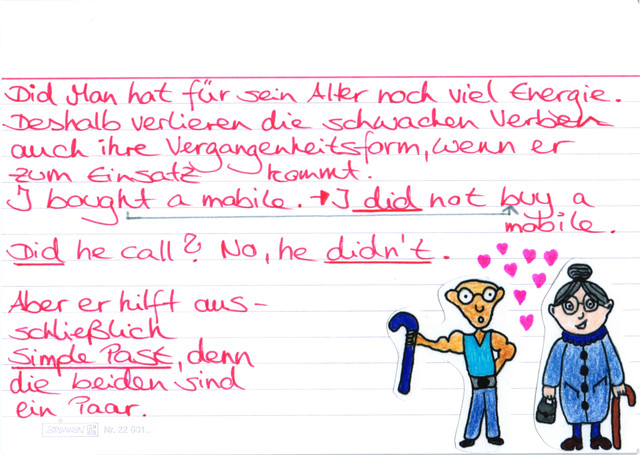 Did Man hat für sein Alter noch viel Energie.
Deshalb verlieren die schwachen Verben
auch ihre Vergangenheitsform, wenn er
zum Einsatz kommt.
I bought a mobile. → I did not buy a
mobile.
Did he call? No, he didn't.
Aber er hilft aus-
schließlich
Simple Past, denn
die beiden sind
ein Paar.
Nr. 22 601..